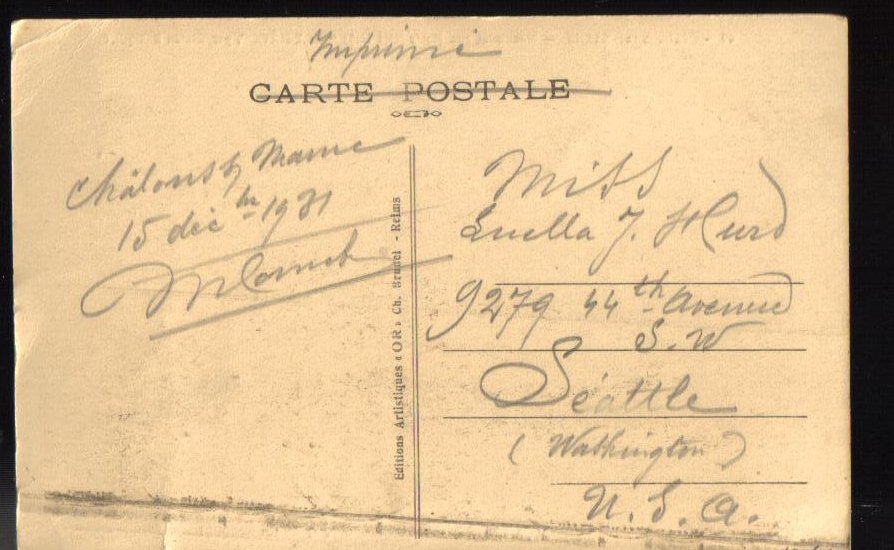 Imprimé
CARTE POSTALE
Châlons s/ Marne
15 déc bre 1931
Miss
Luella J. Hurd
9279 44th Avenue
S. W
Séattle
(Washington)
U. S. A.
Editions Artistiques "OR" Ch. Brunel - Reims